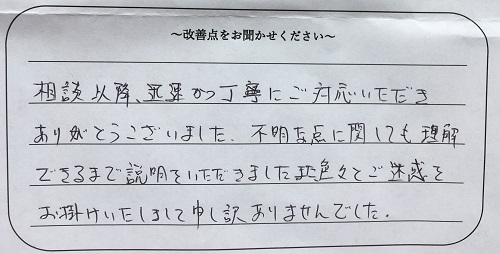 ～改善点をお聞かせください～
相談以降、迅速かつ丁寧にご対応いただき
ありがとうございました。不明な点に関しても理解
できるまで説明をいただきました 色々とご迷惑を
お掛けいたしまして申し訳ありませんでした。